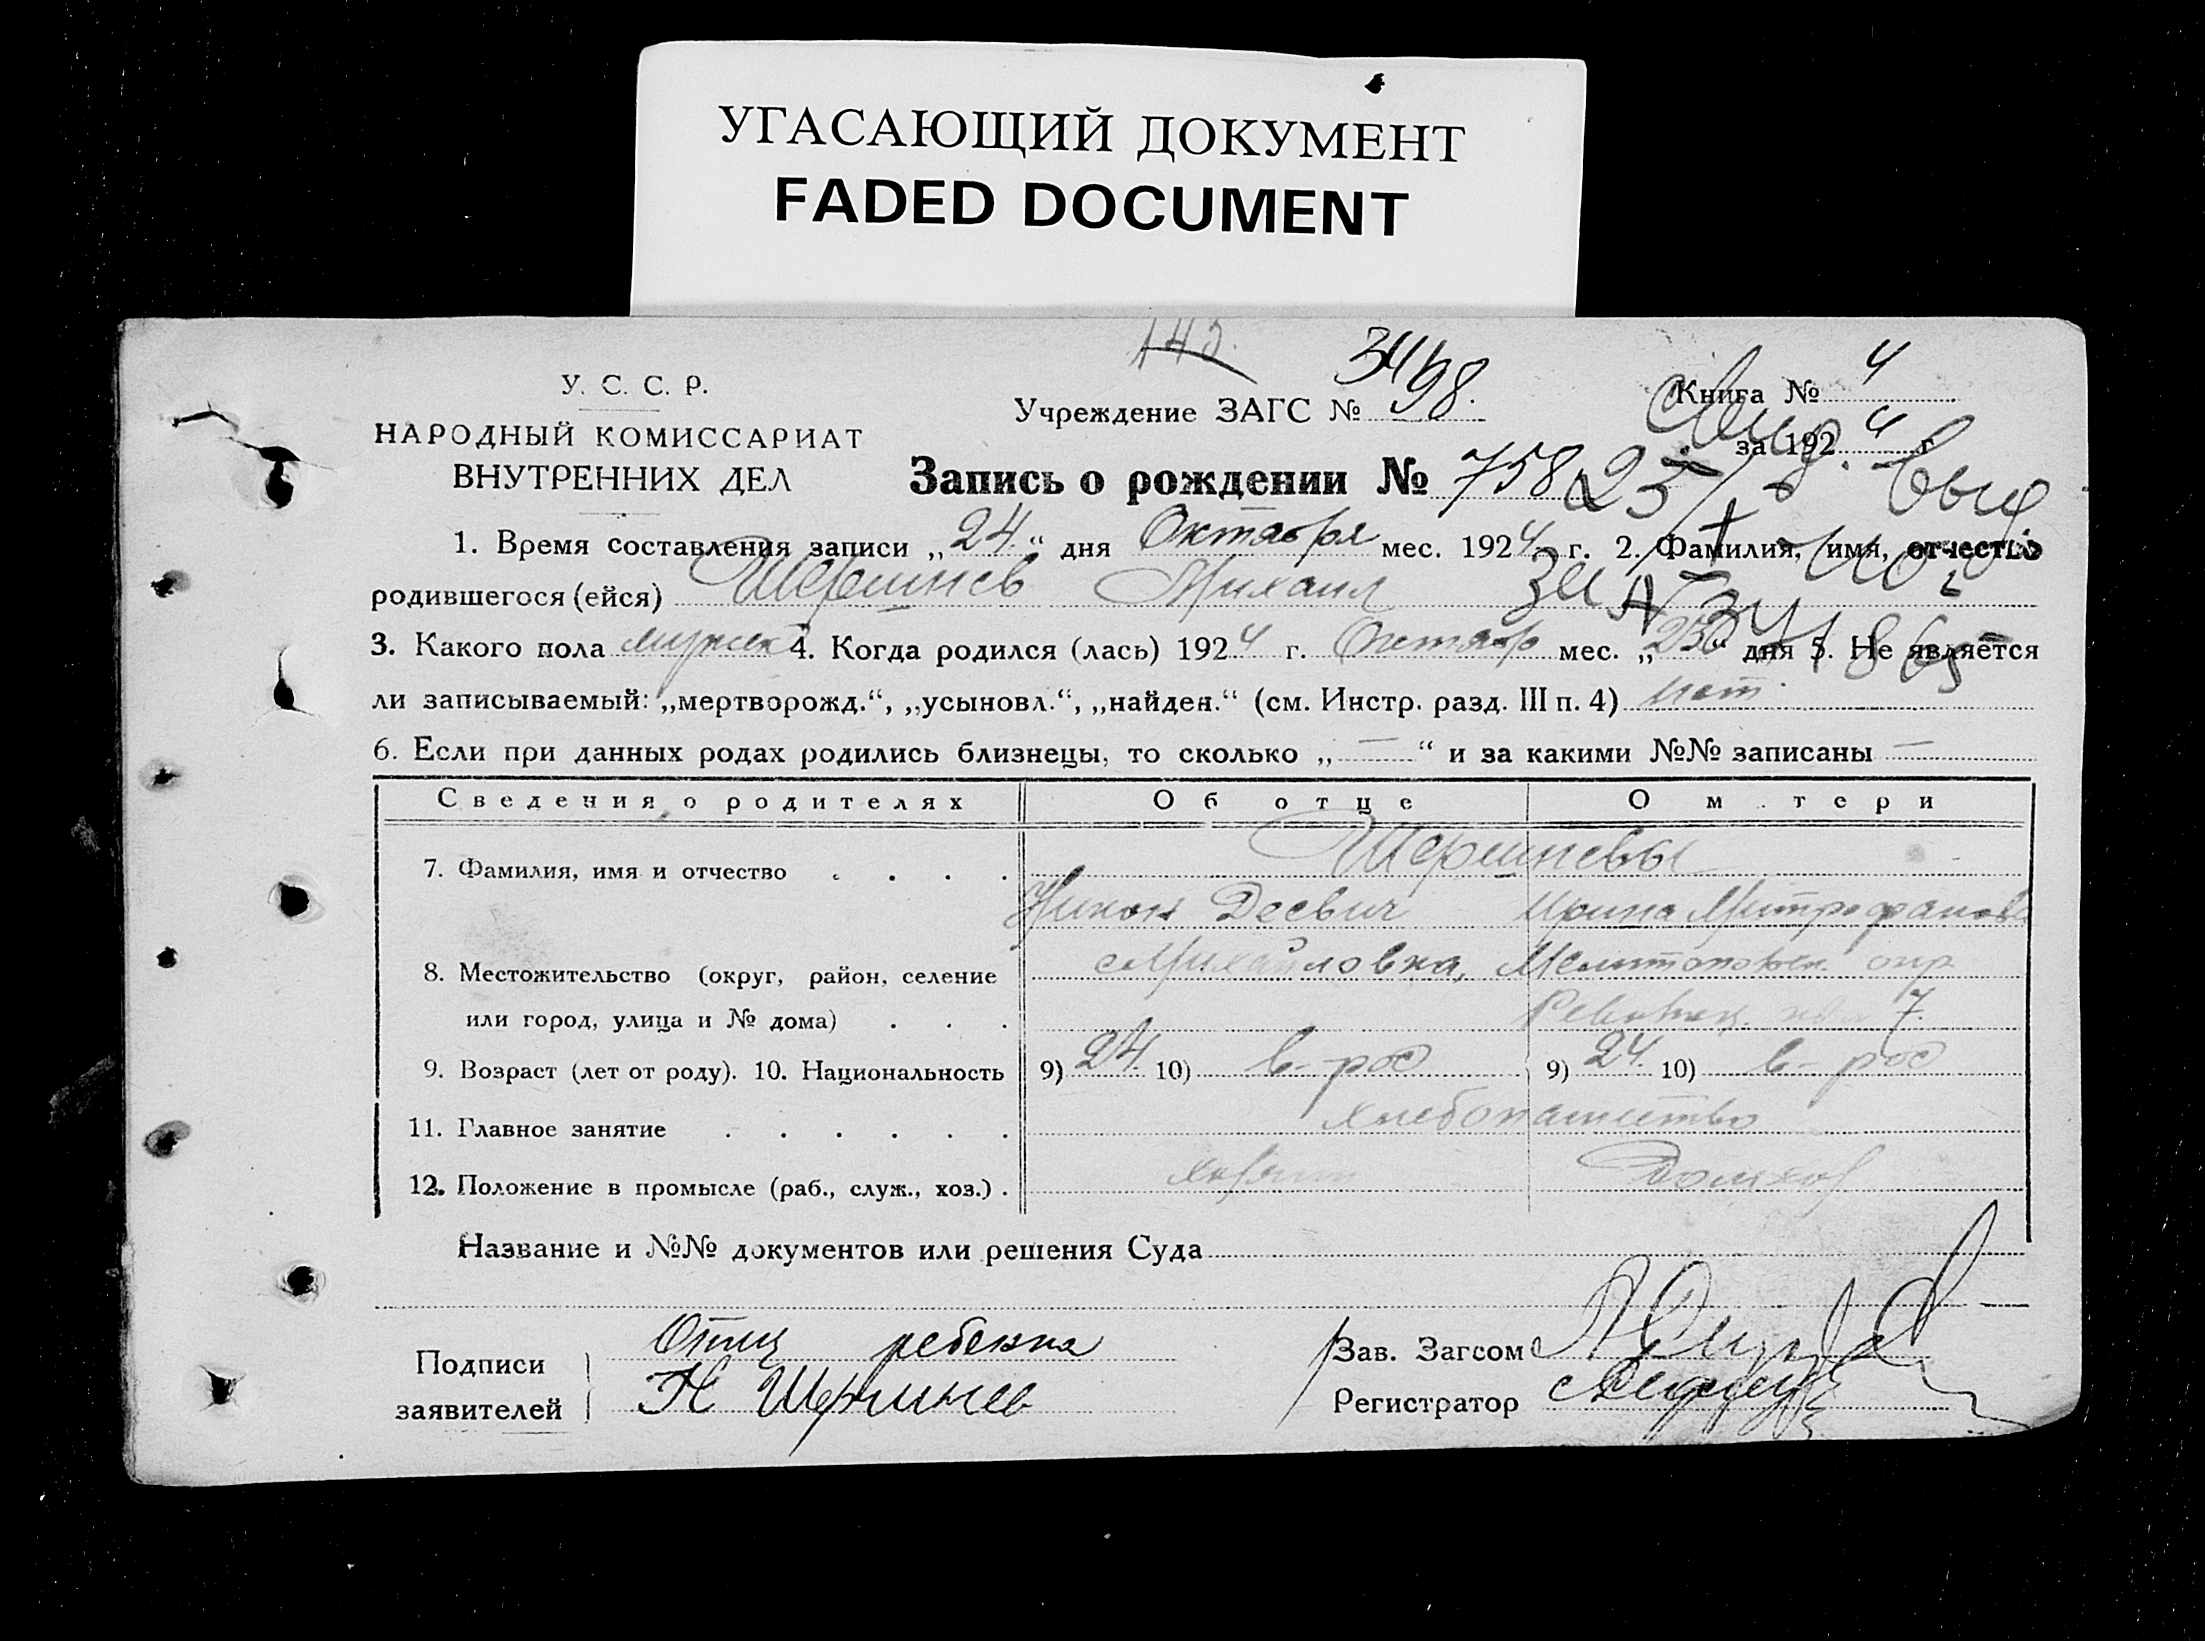 УГАСАЮЩИЙ ДОКУМЕНТ
FADED DOCUMENT
143.
У. С. С. Р.
НАРОДНЫЙ КОМИССАРИАТ
ВНУТРЕННИХ ДЕЛ
Учреждение ЗАГС № 3498.
Книга № 4
за 1924 г.
Запись о рождении № 758
1. Время составления записи „24.“ дня Октября мес. 1924 г. 2. Фамилия, имя, отчество
родившегося (ейся) Шершнев Михаил
3. Какого пола мужск 4. Когда родился (лась) 1924 г. Октябр мес. „ “ дня 5. Не является
ли записываемый: „мертворожд.“, „усыновл.“, „найден.“ (см. Инстр. разд. III п. 4) нет.
6. Если при данных родах родились близнецы, то сколько „—“ и за какими №№ записаны —
Сведения о родителях Об отце О м тери
7. Фамилия, имя и отчество Шершневы
Никон Деевич Ирина Митрофанова
8. Местожительство (округ, район, селение
или город, улица и № дома)
с Михайловка, Мелитопольск. окр
7.
9. Возраст (лет от роду). 10. Национальность 9) 24. 10) в-рос 9) 24. 10) в-рос
11. Главное занятие хлебопашество
12. Положение в промысле (раб., служ., хоз.) хозяин Домхоз
Название и №№ документов или решения Суда
Подписи
заявителей
Отец ребенка
Н Шершнев
Зав. Загсом
Регистратор